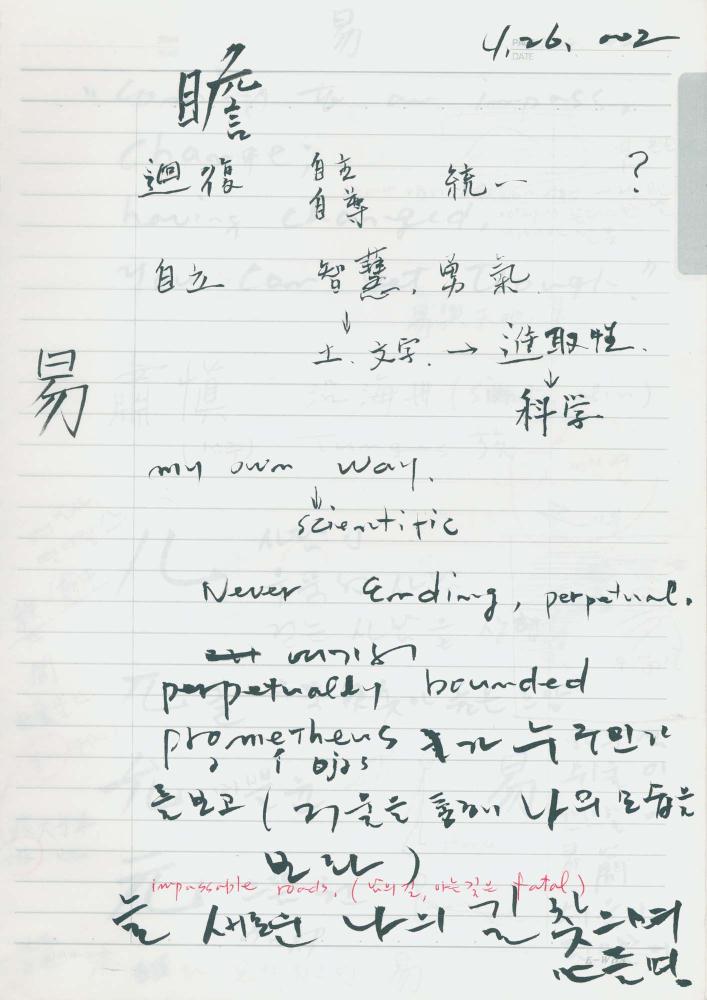 4, 26, 002
瞻
迴復 自主 統一 ?
自尊
自立 智慧, 勇氣
↓
土. 文字. → 進取性.
↓
易
科学
my own way.
↓
scientific
Never Ending, perpetual.
여기서
perpetually bounded
prometheus 가 누구인가
를 보고 (거울을 통해 나의 모습을
보라)
impassable roads. (남의 길, 아는 길은 fatal)
늘 새로운 나의 길 찾으며
만들며.